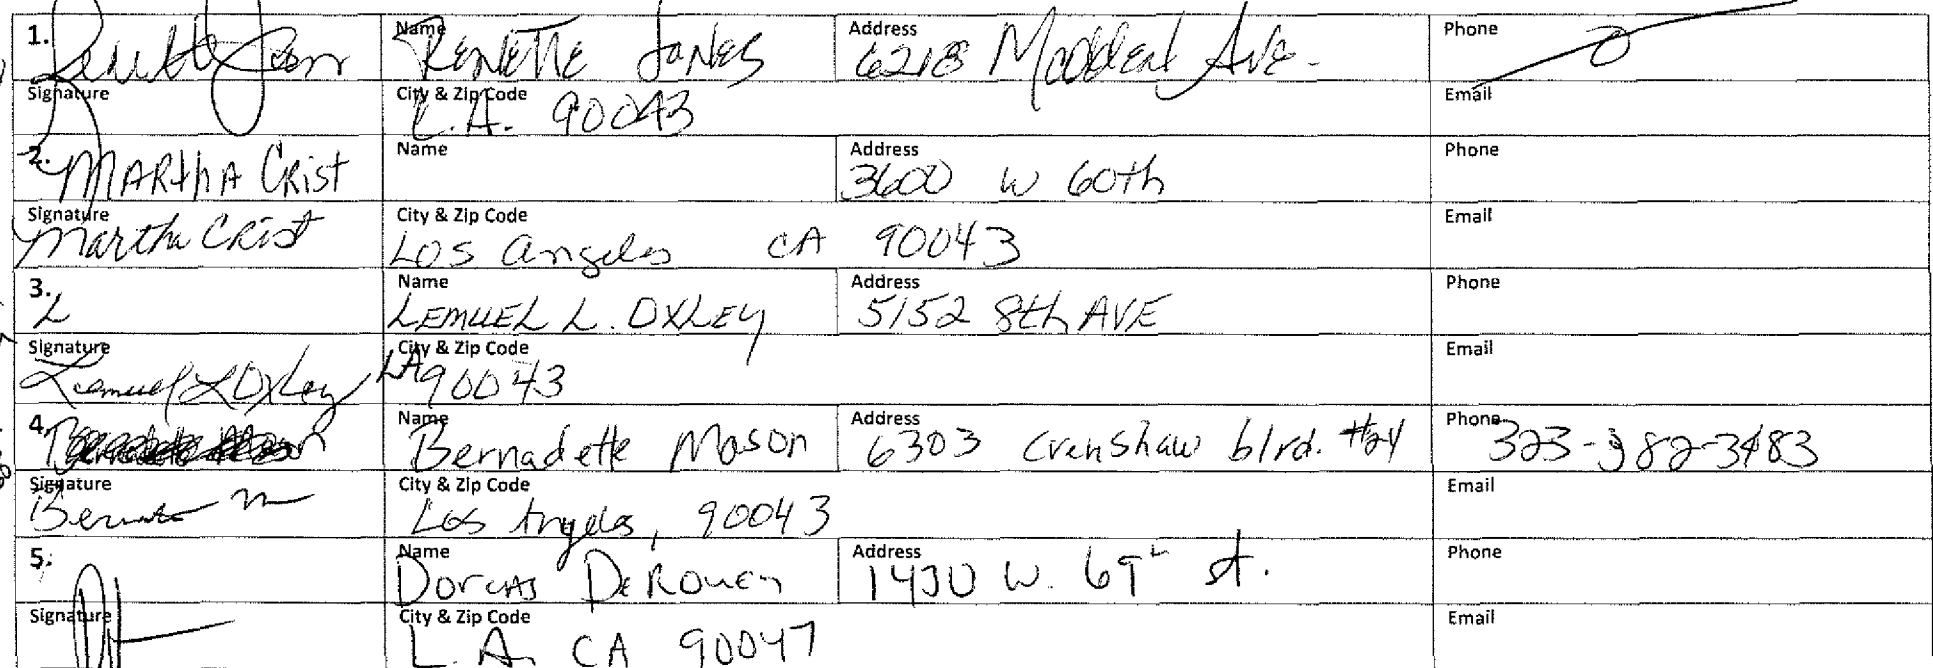 1. Renette Jones Name RENETTE JONES Address 6218 Madden Ave. Phone
Signature City & Zip Code L.A. 90043 Email
2. MARthA CRist Name Address 3600 W 60th Phone
Signature Martha CRist City & Zip Code Los Angeles CA 90043 Email
3. L Name LEMUEL L. OXLEY Address 5152 8th AVE Phone
Signature Lemuel L Oxley City & Zip Code LA 90043 Email
4. Name Bernadette Mason Address 6303 Crenshaw blvd. #24 Phone 323-382-3483
Signature City & Zip Code Los Angeles, 90043 Email
5. Name Dorcas DeRouen Address 1430 W. 69th st. Phone
Signature City & Zip Code L.A. CA 90047 Email